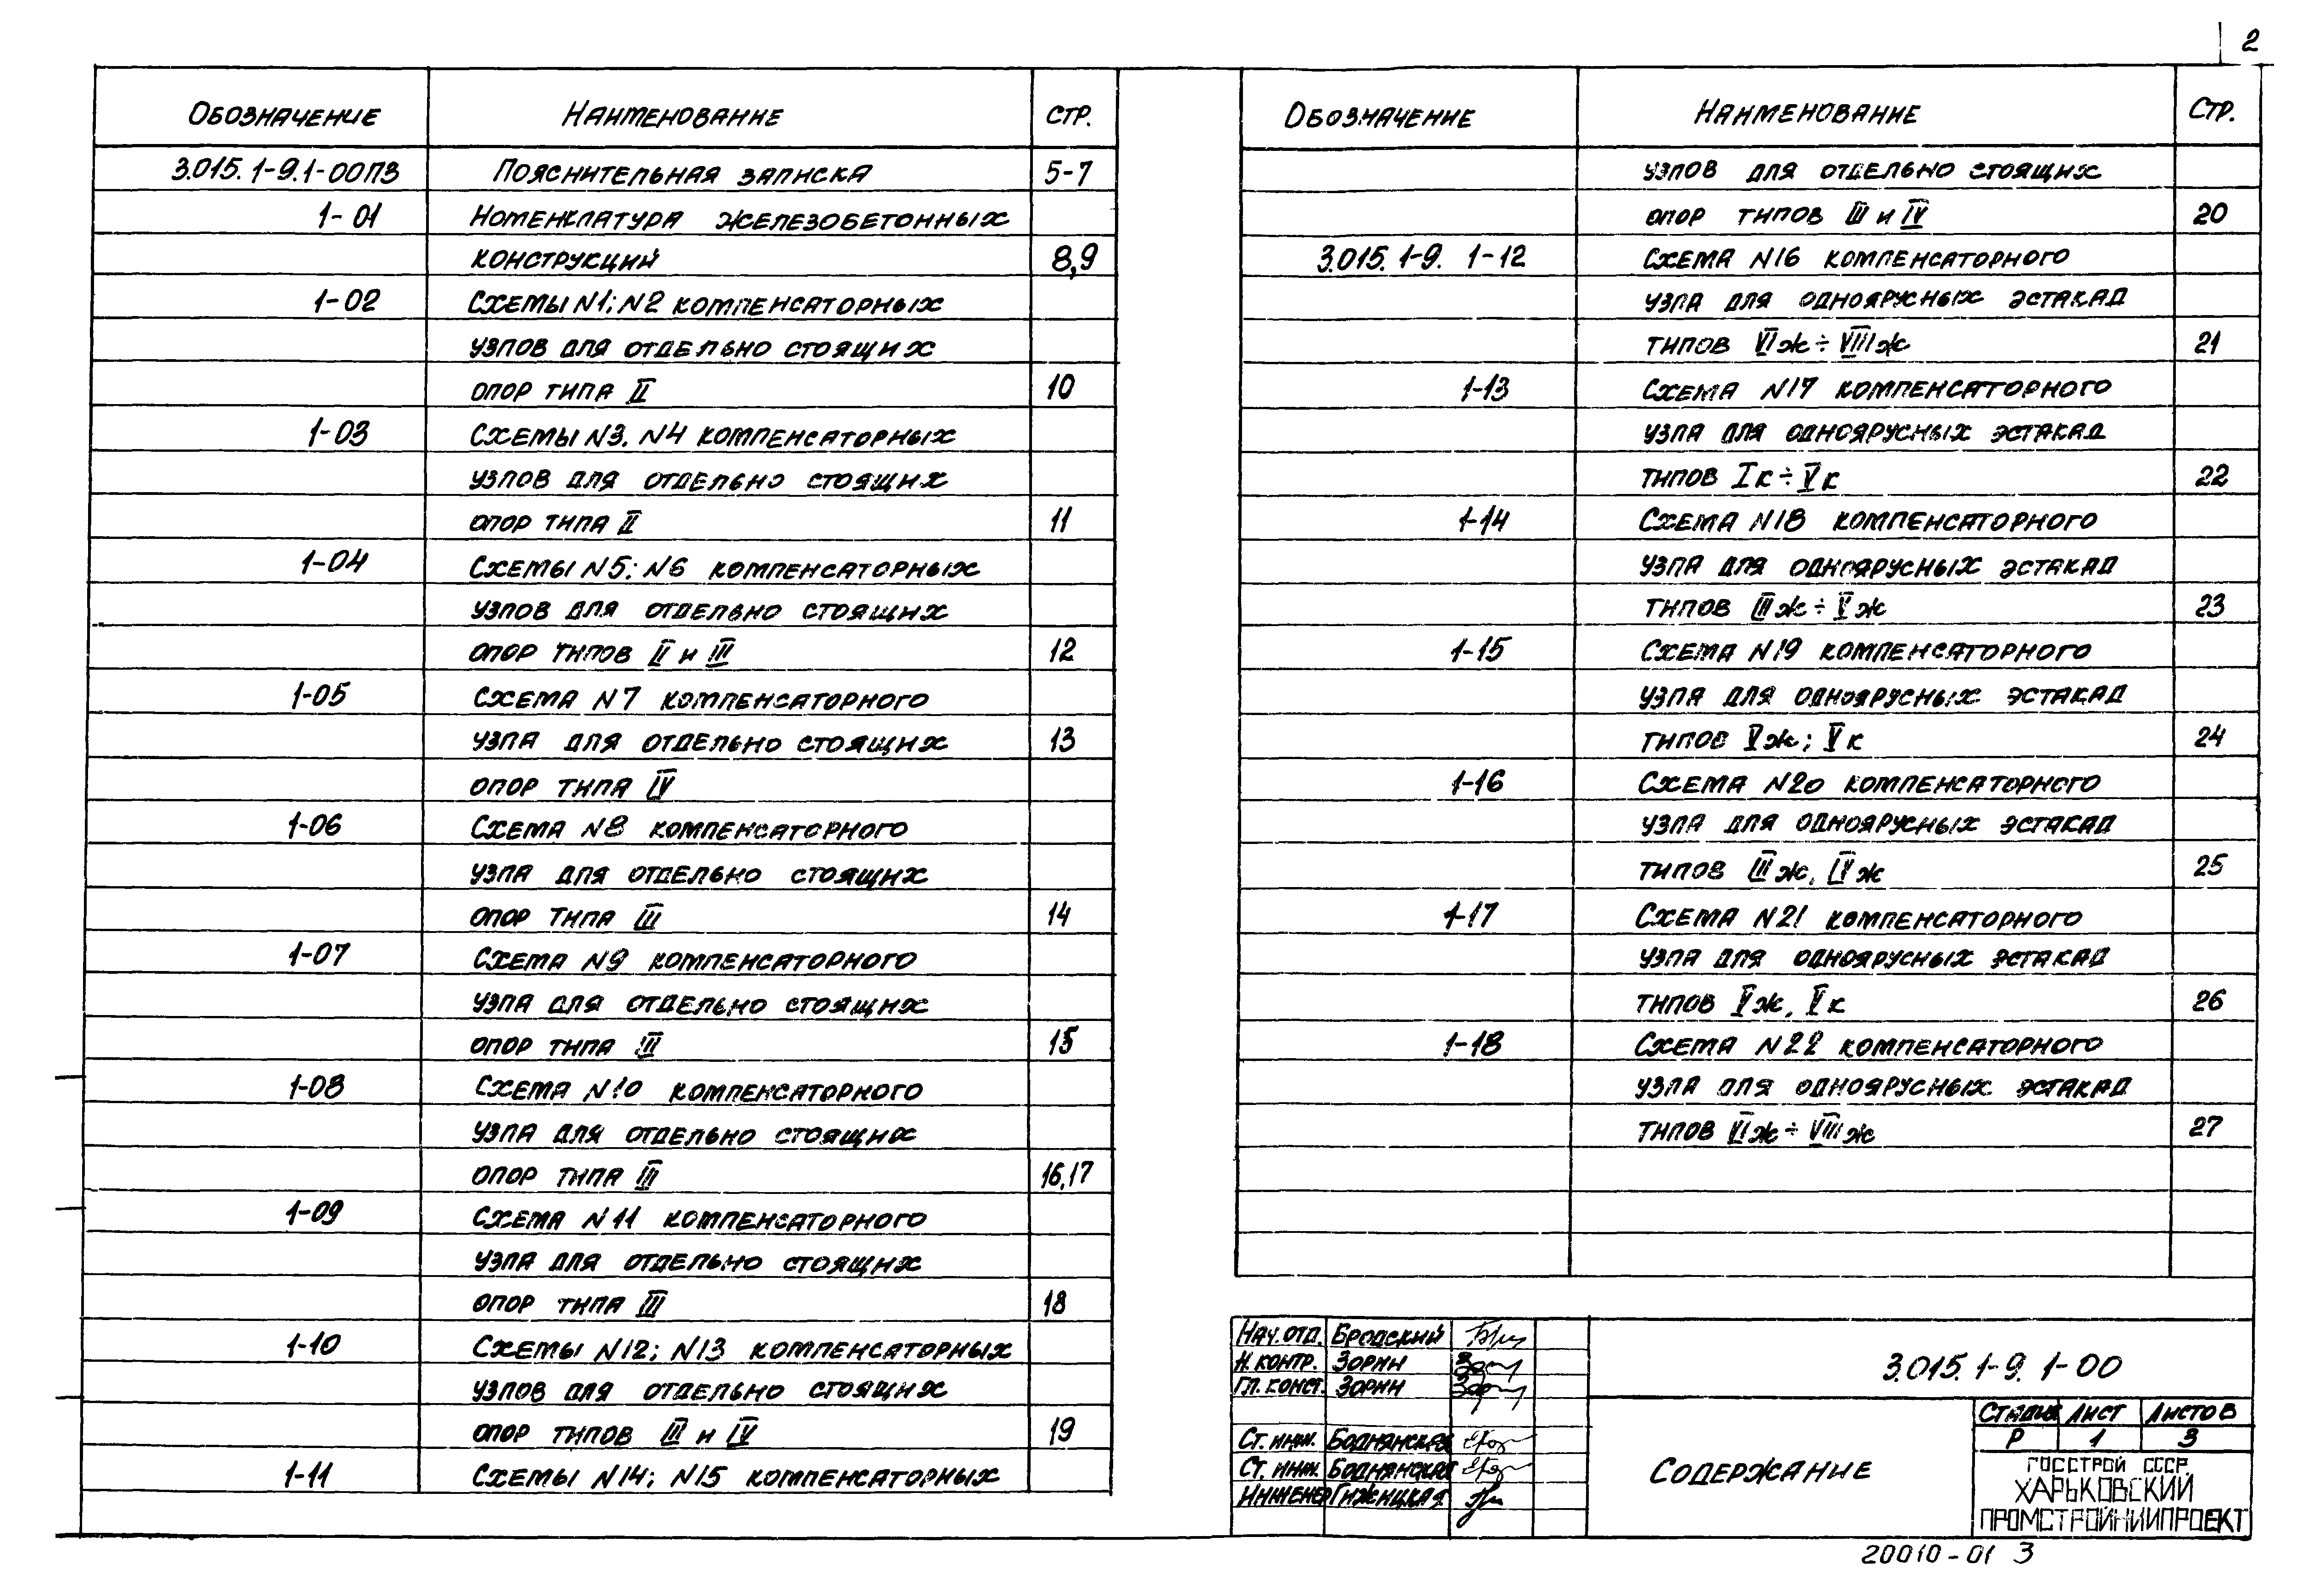 2
Обозначение Наименование Стр.
3.015.1-9.1-00ПЗ Пояснительная записка 5-7
1-01 Номенклатура железобетонных
конструкций 8,9
1-02 Схемы N1; N2 компенсаторных
узлов для отдельно стоящих
опор типа II 10
1-03 Схемы N3, N4 компенсаторных
узлов для отдельно стоящих
опор типа II 11
1-04 Схемы N5; N6 компенсаторных
узлов для отдельно стоящих
опор типов II и III 12
1-05 Схема N7 компенсаторного
узла для отдельно стоящих 13
опор типа IV
1-06 Схема N8 компенсаторного
узла для отдельно стоящих
опор типа III 14
1-07 Схема N9 компенсаторного
узла для отдельно стоящих
опор типа III 15
1-08 Схема N10 компенсаторного
узла для отдельно стоящих
опор типа III 16,17
1-09 Схема N11 компенсаторного
узла для отдельно стоящих
опор типа III 18
1-10 Схемы N12; N13 компенсаторных
узлов для отдельно стоящих
опор типов III и IV 19
1-11 Схемы N14; N15 компенсаторных
Обозначение Наименование Стр.
узлов для отдельно стоящих
опор типов III и IV 20
3.015.1-9. 1-12 Схема N16 компенсаторного
узла для одноярусных эстакад
типов VIж÷VIIIж 21
1-13 Схема N17 компенсаторного
узла для одноярусных эстакад
типов Iк÷Vк 22
1-14 Схема N18 компенсаторного
узла для одноярусных эстакад
типов IIIж÷Vж 23
1-15 Схема N19 компенсаторного
узла для одноярусных эстакад
типов Vж; Vк 24
1-16 Схема N20 компенсаторного
узла для одноярусных эстакад
типов IIIж, IVж 25
1-17 Схема N21 компенсаторного
узла для одноярусных эстакад
типов Vж, Vк 26
1-18 Схема N22 компенсаторного
узла для одноярусных эстакад
типов VIж÷VIIIж 27
Нач.отд. Бродский
Н.контр. Зорин
Гл.конст. Зорин
Ст.инж. Боднянская
Ст.инж. Боднянская
Инженер Гижицкая
3.015.1-9.1-00
Содержание
Стадия Лист Листов
Р 1 3
ГОССТРОЙ СССР
ХАРЬКОВСКИЙ
ПРОМСТРОЙНИИПРОЕКТ
20010-01 3